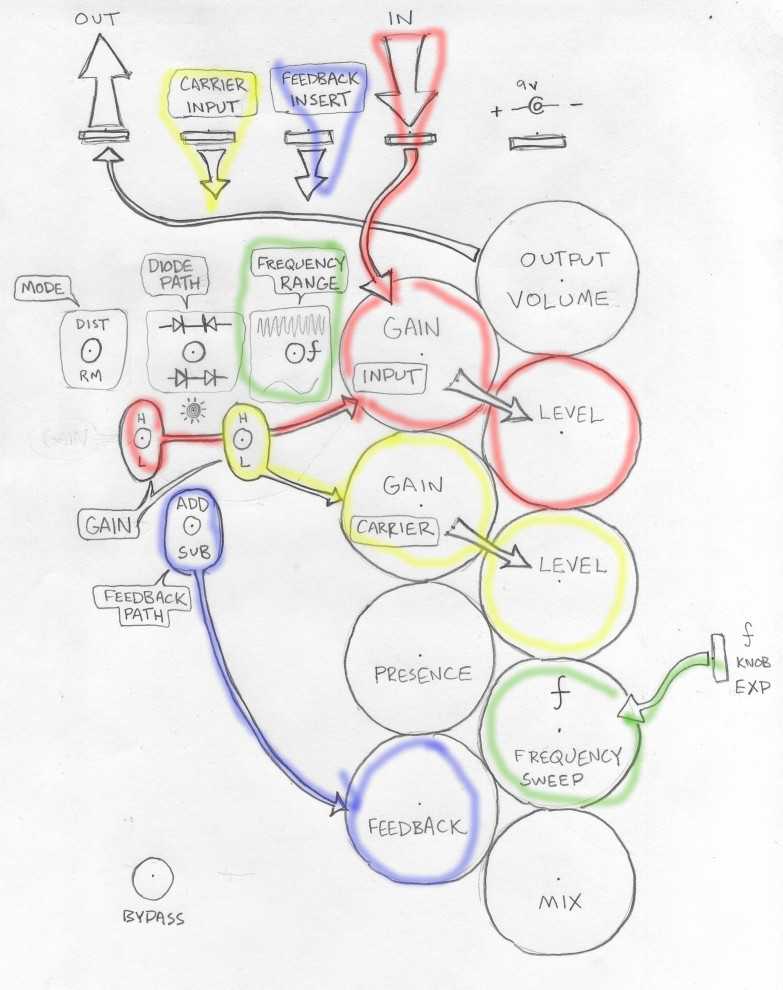 OUT
IN
CARRIER
INPUT
FEEDBACK
INSERT
9V
+ -
OUTPUT
VOLUME
MODE
DIODE
PATH
FREQUENCY
RANGE
DIST
RM
f
GAIN
INPUT
LEVEL
H
L
H
L
GAIN
GAIN
GAIN
CARRIER
LEVEL
ADD
SUB
FEEDBACK
PATH
PRESENCE
f
KNOB
EXP
f
FREQUENCY
SWEEP
FEEDBACK
MIX
BYPASS